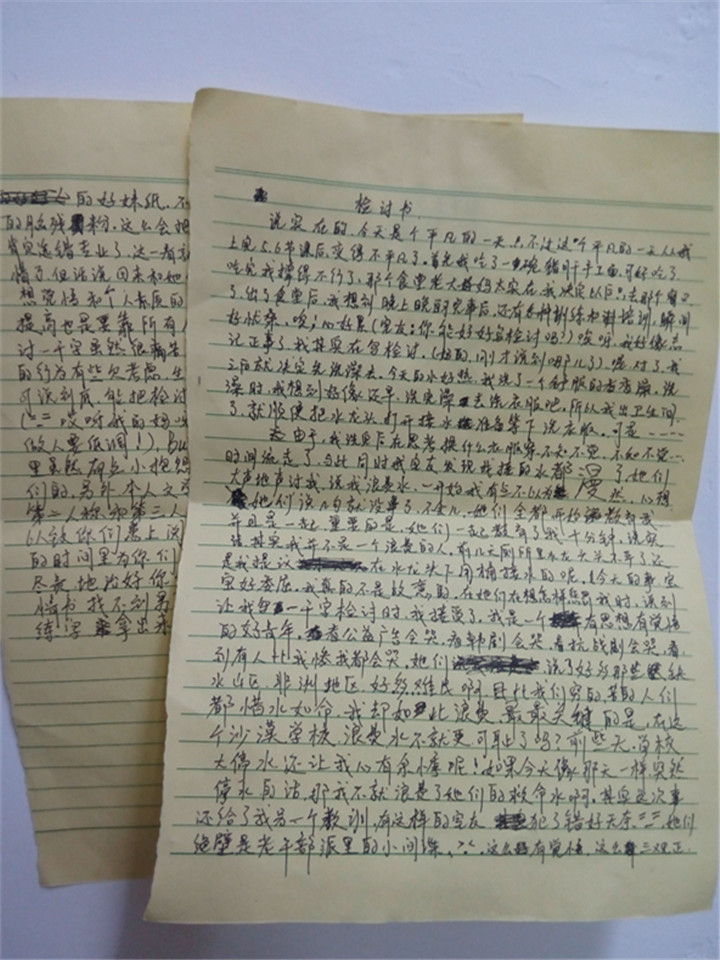 的好妹纸。不
的脑残粉。这么会把
肯定选错专业了。这一看就
情了。但话说回来和她
想觉悟和个人素质的
提高也是要靠所有人
讨一千字虽然很痛苦
的行为有些欠考虑。生
可谈到底，能把检讨
(二二 哎呀我的妈呀
做人要低调！)，bu
里虽然有点小抱怨
们的。另外，本人文学
第二人称和第三人
以致你们患上阅
的时间里为你们
尽我地治好你
情书找不到男
练字拿出来
检讨书
说实在的，今天是个平凡的一天。只不过这个平凡的一天从我
上完5.6节课后，变得不平凡了。首先我吃了一碗猪肝手工面，可好吃了
吃完我撑得不行了，那个食堂老大妈太实在，我决定以后去那个窗口
了。出了食堂后，我想到晚上晚自习完事后，还有各种训练和培训，瞬间
好忧桑，唉，心好累(室友：你能好好写检讨吗？)唉呀，我好像忘
记正事了，我其实在写检讨。(好的，刚才说到哪儿了)嗯，对了，我
之后就决定先洗澡去。今天的水好热，我洗了一个舒服的香香澡，洗
澡时，我想到好像还早，洗完澡去洗衣服吧。所以我出卫生间
了，就顺便把水龙头打开接水准备等下洗衣服。可是----
由于，我洗完后在思考换什么衣服穿，不知不觉，不知不觉...
时间流走了，与此同时我室友发现我接的水都漫了，她们
大声地声讨我，说我浪费水，一开始我有点不以为然，心想
她们说几句就没事了，不会儿，她们全都开始教都我
并且是一起，重要的是，她们一起教育了我十分钟。说实
话其实我并不是一个浪费的人，前几天厕所里水龙头关不牢了还
是我提议在水龙头下用桶接水的呢。今天的事实
实好委屈，我真的不是故意的。在她们在想怎样惩罚我时，谈到
让我写一千字检讨时，我接受了，我是一个有思想有觉悟
的好青年，看公益广告会哭，看韩剧会哭，看抗战剧会哭，看
到有人比我惨我都会哭。她们说了好多那些缺
水山区，非洲地区，好多难民啊，且比我们穷的，苦的人们
都惜水如命，我却如此浪费。最最关键的是，在这
个沙漠学校，浪费水不就更可耻了吗？前些天，学校
大停水还让我心有余悸呢！如果今天像那天一样突然
停水的话，那我不就浪费了她们的救命水啊。其实这次事
还给了我另一个教训，有这样的室友犯了错好无奈 二二，她们
绝壁是老干部派里的小间谍，这么有觉悟，这么三观正.